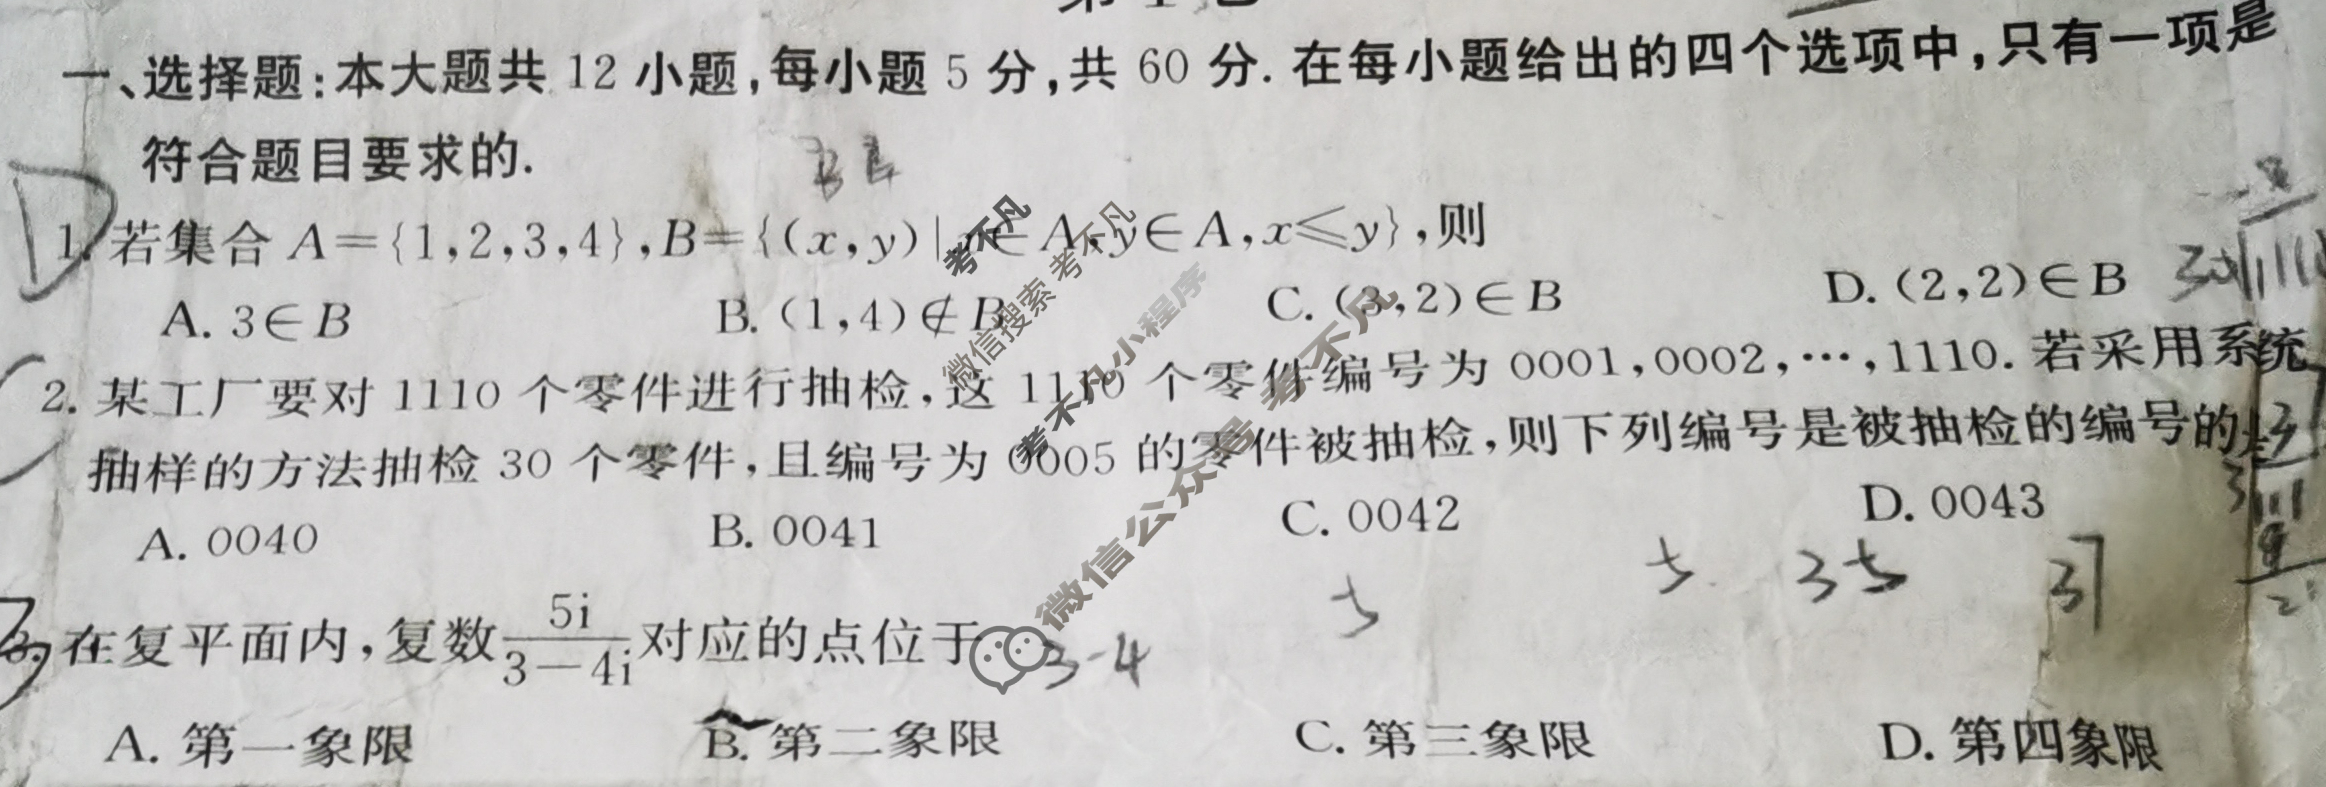 一、选择题:本大题共 12 小题,每小题 5 分,共 60 分. 在每小题给出的四个选项中,只有一项是
符合题目要求的.
D
1. 若集合 A={1,2,3,4},B={(x,y)|x∈A,y∈A,x≤y},则
A. 3∈B B. (1,4)∉B C. (3,2)∈B D. (2,2)∈B
2. 某工厂要对 1110 个零件进行抽检,这 1110 个零件编号为 0001,0002,…,1110. 若采用系统
抽样的方法抽检 30 个零件,且编号为 0005 的零件被抽检,则下列编号是被抽检的编号的是
A. 0040 B. 0041 C. 0042 D. 0043
5 5 35 37
3. 在复平面内,复数5i/(3-4i)对应的点位于
3-4
A. 第一象限 B. 第二象限 C. 第三象限 D. 第四象限
考不凡
微信搜索 考不凡
考不凡小程序
微信公众号 考不凡